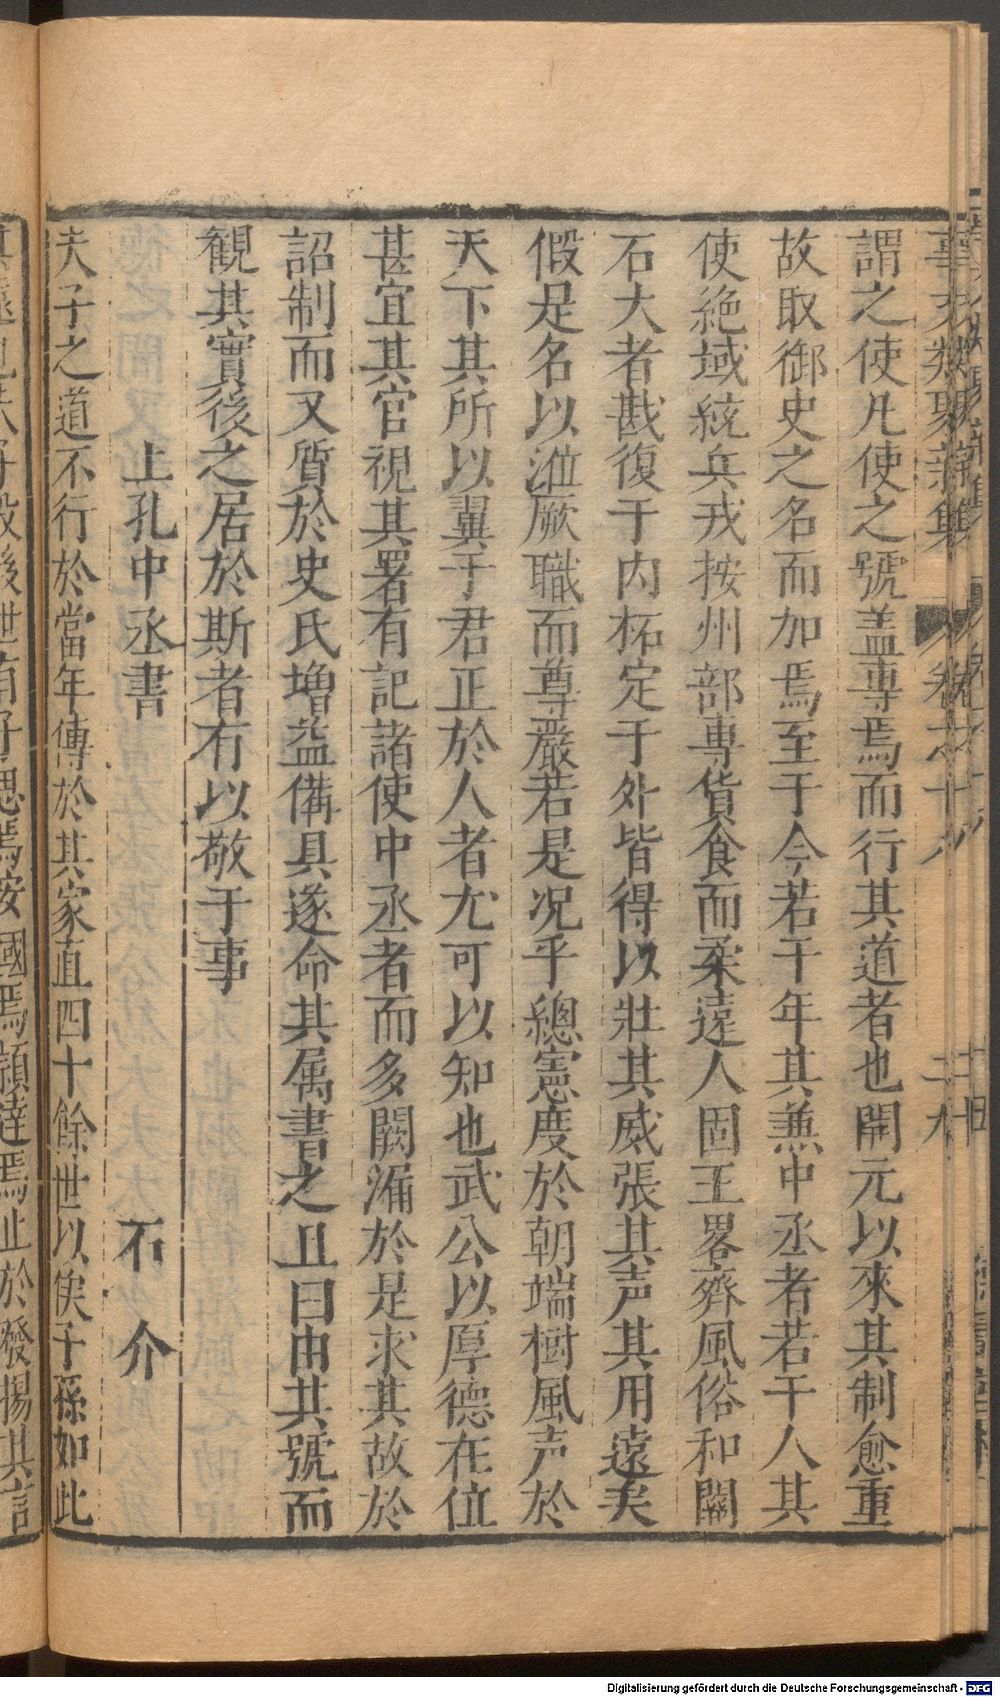 事文類聚新集 卷六十八
謂之使凡使之號盖專焉而行其道者也開元以來其制愈重
故取御史之名而加焉至于今若干年其兼中丞者若干人其
使絶域統兵戎按州部專貨食而柔遠人固王畧齊風俗和關
石大者戡復于内柘定于外皆得以壯其威張其声其用遠矣
假是名以涖厥職而尊嚴若是况乎總憲度於朝端樹風声於
天下其所以翼于君正於人者尤可以知也武公以厚德在位
甚宜其官視其署有記諸使中丞者而多闕漏於是求其故於
詔制而又質於史氏增益備具遂命其属書之且曰由其號而
觀其實後之居於斯者有以敬于事
上孔中丞書 石介
夫子之道不行於當年傳於其家直四十餘世以俟子孫如此
後世有子思焉安國焉頴達焉止於發揚其言
Digitalisierung gefördert durch die Deutsche Forschungsgemeinschaft - DFG